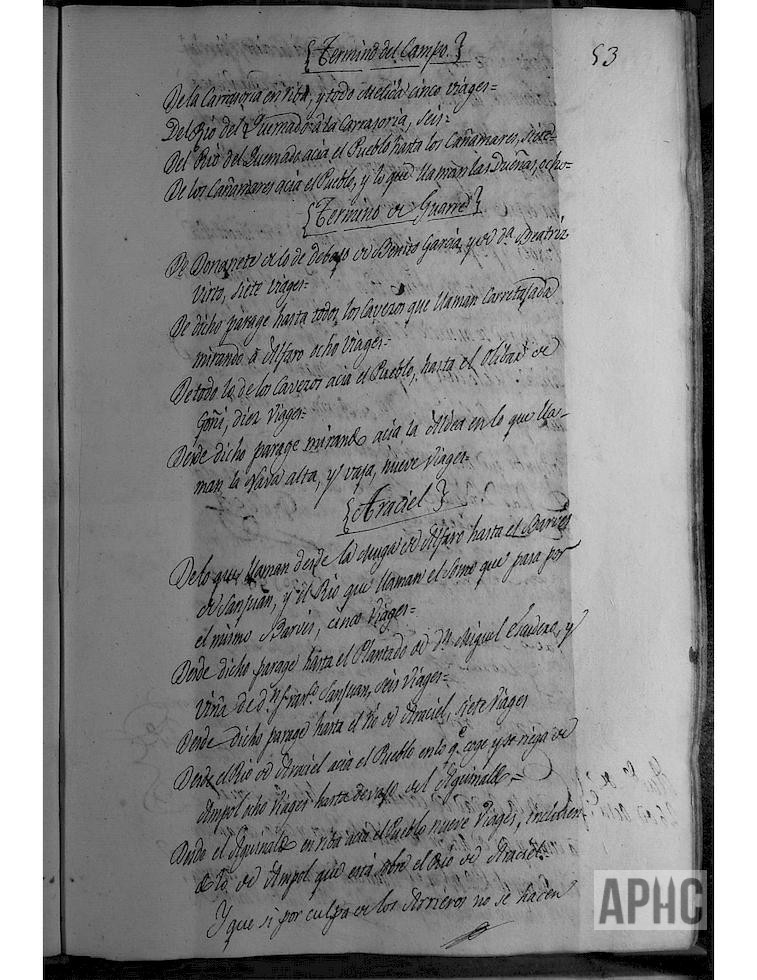 {Termino del Campo.}
53
De la Carrasoria en riba, y todo Melida cinco viages=
Del Rio del Quemado à la Carrasoria, seis=
Del Rio del Quemado acia el Pueblo hasta los Cañamares, siete=
De los Cañamares acia el Pueblo, y lo que llaman las Dueñas, ocho=
{Termino de Guarre}
De Donapete de lo de debajo de Benito Garcia, y de dª Beatriz
Virto, siete viages=
De dicho parage hasta todos los Caveros que llaman Carretajada
mirando à Alfaro ocho viages=
De todo lo de los Caveros acia el Pueblo, hasta el Olibar de
Goñi, diez viages=
Desde dicho parage mirando acia la Aldea en lo que lla-
man la Nava alta, y vaja, nueve viages=
{Araciel}
De lo que llaman desde la Muga de Alfaro hasta el Barves
de Sanjuan, y el Rio que llaman el Somo que pasa por
el mismo Barves, cinco viages=
Desde dicho parage hasta el Plantado de dn Miguel Escudero, y
Viña de d.n Fran.co Sanjuan, seis viages=
Desde dicho parage hasta el rio de Araciel, siete viages
Desde el Rio de Araciel acia el Pueblo en lo q.e coge y se riega de
Ampol ocho viages hasta devajo del Aguinaldo=
Desde el Aguinaldo en riba acia el Pueblo nueve viages, incluien-
do lo de Ampol que está sobre el Rio de Araciel=
Y que si por culpa de los Arrieros no se hacen
APHC